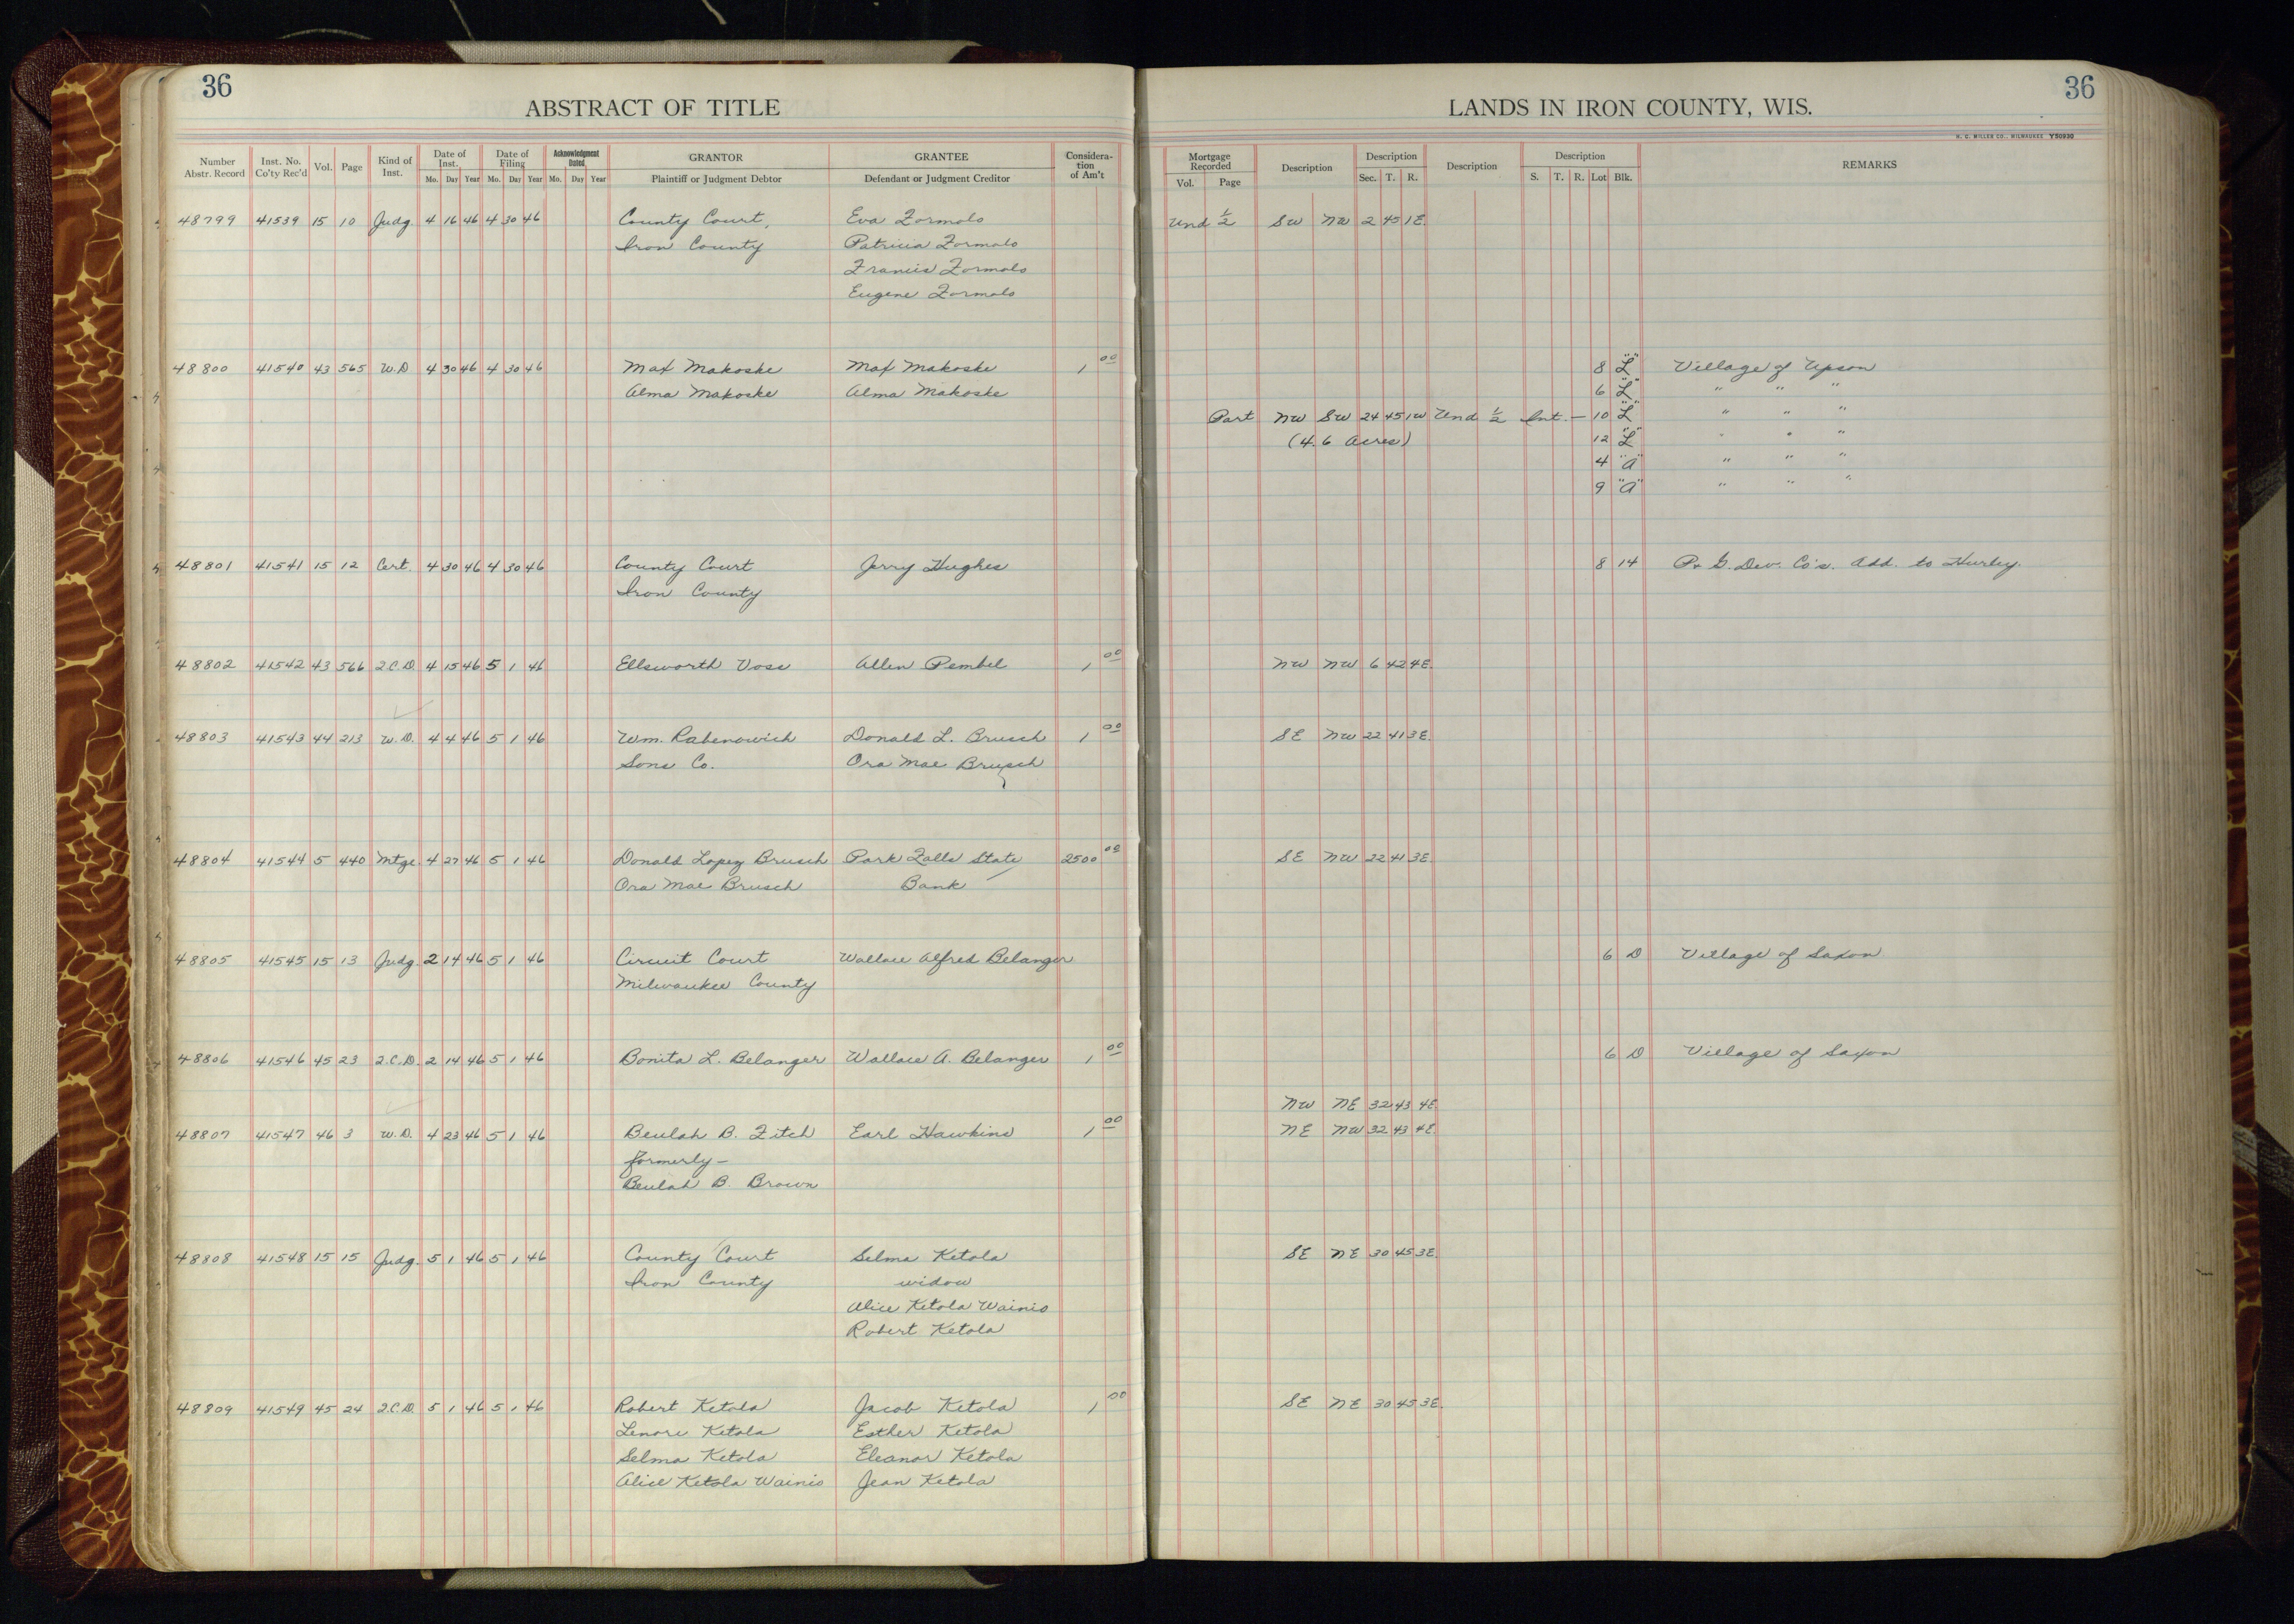 36
ABSTRACT OF TITLE
LANDS IN IRON COUNTY, WIS.
36
H. C. MILLER CO., MILWAUKEE Y50930
Number Abstr. Record | Inst. No. Co'ty Rec'd | Vol. | Page | Kind of Inst. | Date of Inst. Mo. Day Year | Date of Filing Mo. Day Year | Acknowledgment Dated Mo. Day Year | GRANTOR Plaintiff or Judgment Debtor | GRANTEE Defendant or Judgment Creditor | Consideration of Am't | Mortgage Recorded Vol. Page | Description | Description Sec. T. R. | Description | Description S. T. R. Lot Blk. | REMARKS
48799 41539 15 10 Judg. 4 16 46 4 30 46 County Court, Eva Zormolo Und 1/2 SW NW 2 45 1E.
Iron County Patricia Zormolo
Francis Zormolo
Eugene Zormolo
48800 41540 43 565 W.D 4 30 46 4 30 46 Max Makoske Max Makoske 1 00 8 "L" Village of Upson
Alma Makoske Alma Makoske 6 "L" " " "
Part NW SW 24 45 1W Und 1/2 Int. — 10 "L" " " "
(4.6 Acres) 12 "L" " " "
4 "A" " " "
9 "A" " " "
48801 41541 15 12 Cert. 4 30 46 4 30 46 County Court Jerry Hughes 8 14 P. & G. Dev. Co's. Add. to Hurley.
Iron County
48802 41542 43 566 2.C.D. 4 15 46 5 1 46 Ellsworth Voss Allen Pembel 1 00 NW NW 6 42 4E.
48803 41543 44 213 W.D. 4 4 46 5 1 46 Wm. Rabenowich Donald L. Brusch 1 00 SE NW 22 41 3E.
Sons Co. Ora Mae Brusch
48804 41544 5 440 Mtge. 4 27 46 5 1 46 Donald Lopez Brusch Park Falls State 2500 00 SE NW 22 41 3E.
Ora Mae Brusch Bank
48805 41545 15 13 Judg. 2 14 46 5 1 46 Circuit Court Wallace Alfred Belanger 6 D Village of Saxon
Milwaukee County
48806 41546 45 23 2.C.D. 2 14 46 5 1 46 Bonita L. Belanger Wallace A. Belanger 1 00 6 D Village of Saxon
NW NE 32 43 4E.
48807 41547 46 3 W.D. 4 23 46 5 1 46 Beulah B. Fitch Earl Hawkins 1 00 NE NW 32 43 4E.
formerly —
Beulah B. Brown
48808 41548 15 15 Judg. 5 1 46 5 1 46 County Court Selma Ketola SE NE 30 45 3E.
Iron County widow
Alice Ketola Wainio
Robert Ketola
48809 41549 45 24 2.C.D. 5 1 46 5 1 46 Robert Ketola Jacob Ketola 1 00 SE NE 30 45 3E.
Lenore Ketola Esther Ketola
Selma Ketola Eleanor Ketola
Alice Ketola Wainio Jean Ketola